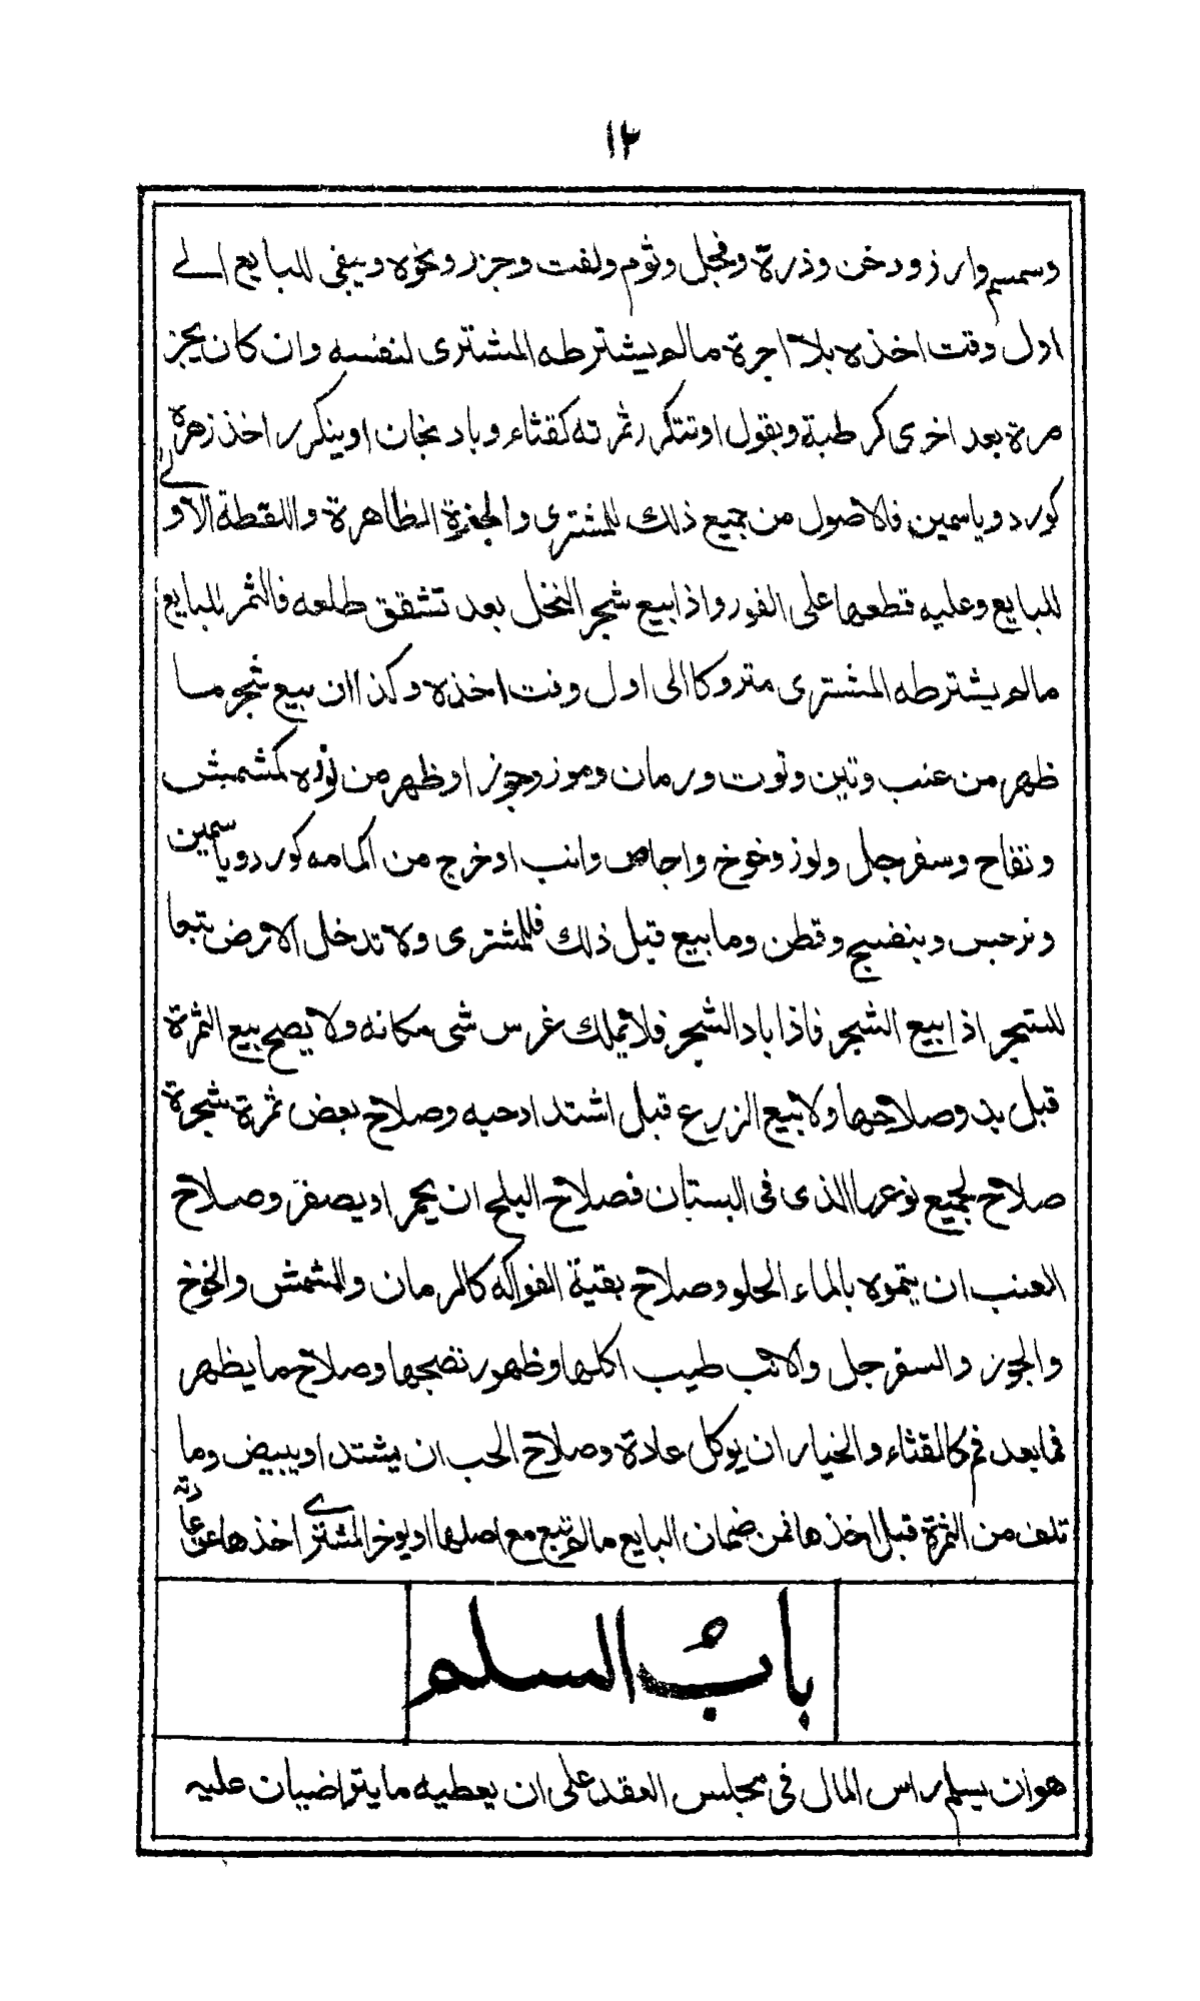 ١٢
وسمسم وارز ودخن وذرة وفجل وثوم ولفت وجزر ونحوه ويبقى للبايع الى
اول وقت اخذه بلا اجرة مالم يشترطه المشترى لنفسه وان كان يجز
مرة بعد اخرى كرطبة وبقول او تتكرر ثمرته كقثاء وباد نجان او يتكرر اخذ زهره
كورد وياسمين فالاصول من جميع ذلك للمشترى والجزة الظاهرة واللقطة الاولى
للبايع وعليه قطعها على الفور واذا بيع شجر النخل بعد تشقق طلعه فالثمر للبايع
مالم يشترطه المشترى متروكا الى اول وقت اخذه وكذا ان بيع شجر ما
ظهر من عنب وتين وتوت ورمان وموز وجوز او ظهر من نوره كمشمش
وتفاح وسفرجل ولوز وخوخ واجاص وانب او خرج من اكمامه كورد وياسمين
ونرجس وبنفسج وقطن وما بيع قبل ذلك فللمشترى ولا تدخل الارض تبعا
للشجر اذا بيع الشجر فاذا باد الشجر فلا يملك غرس شى مكانه ولا يصح بيع الثمرة
قبل بد وصلاحها ولا بيع الزرع قبل اشتداد حبه وصلاح بعض ثمرة شجرة
صلاح لجميع نوعها الذى فى البستان فصلاح البلح ان يحمر او يصفر وصلاح
العنب ان يتموه بالماء الحلو وصلاح بقية الفواكه كالرمان والمشمش والخوخ
والجوز والسفرجل والانب طيب اكلها وظهور نضجها وصلاح ما يظهر
فما بعد فم كالقثاء والخيار ان يوكل عادة وصلاح الحب ان يشتد او يبيض وما
تلف من الثمرة قبل اخذها فمن ضمان البايع مالم تبع مع اصلها او يوخر المشترى اخذها عن عادته
باب السلم
هو ان يسلم راس المال فى مجلس العقد على ان يعطيه ما يتراضيان عليه